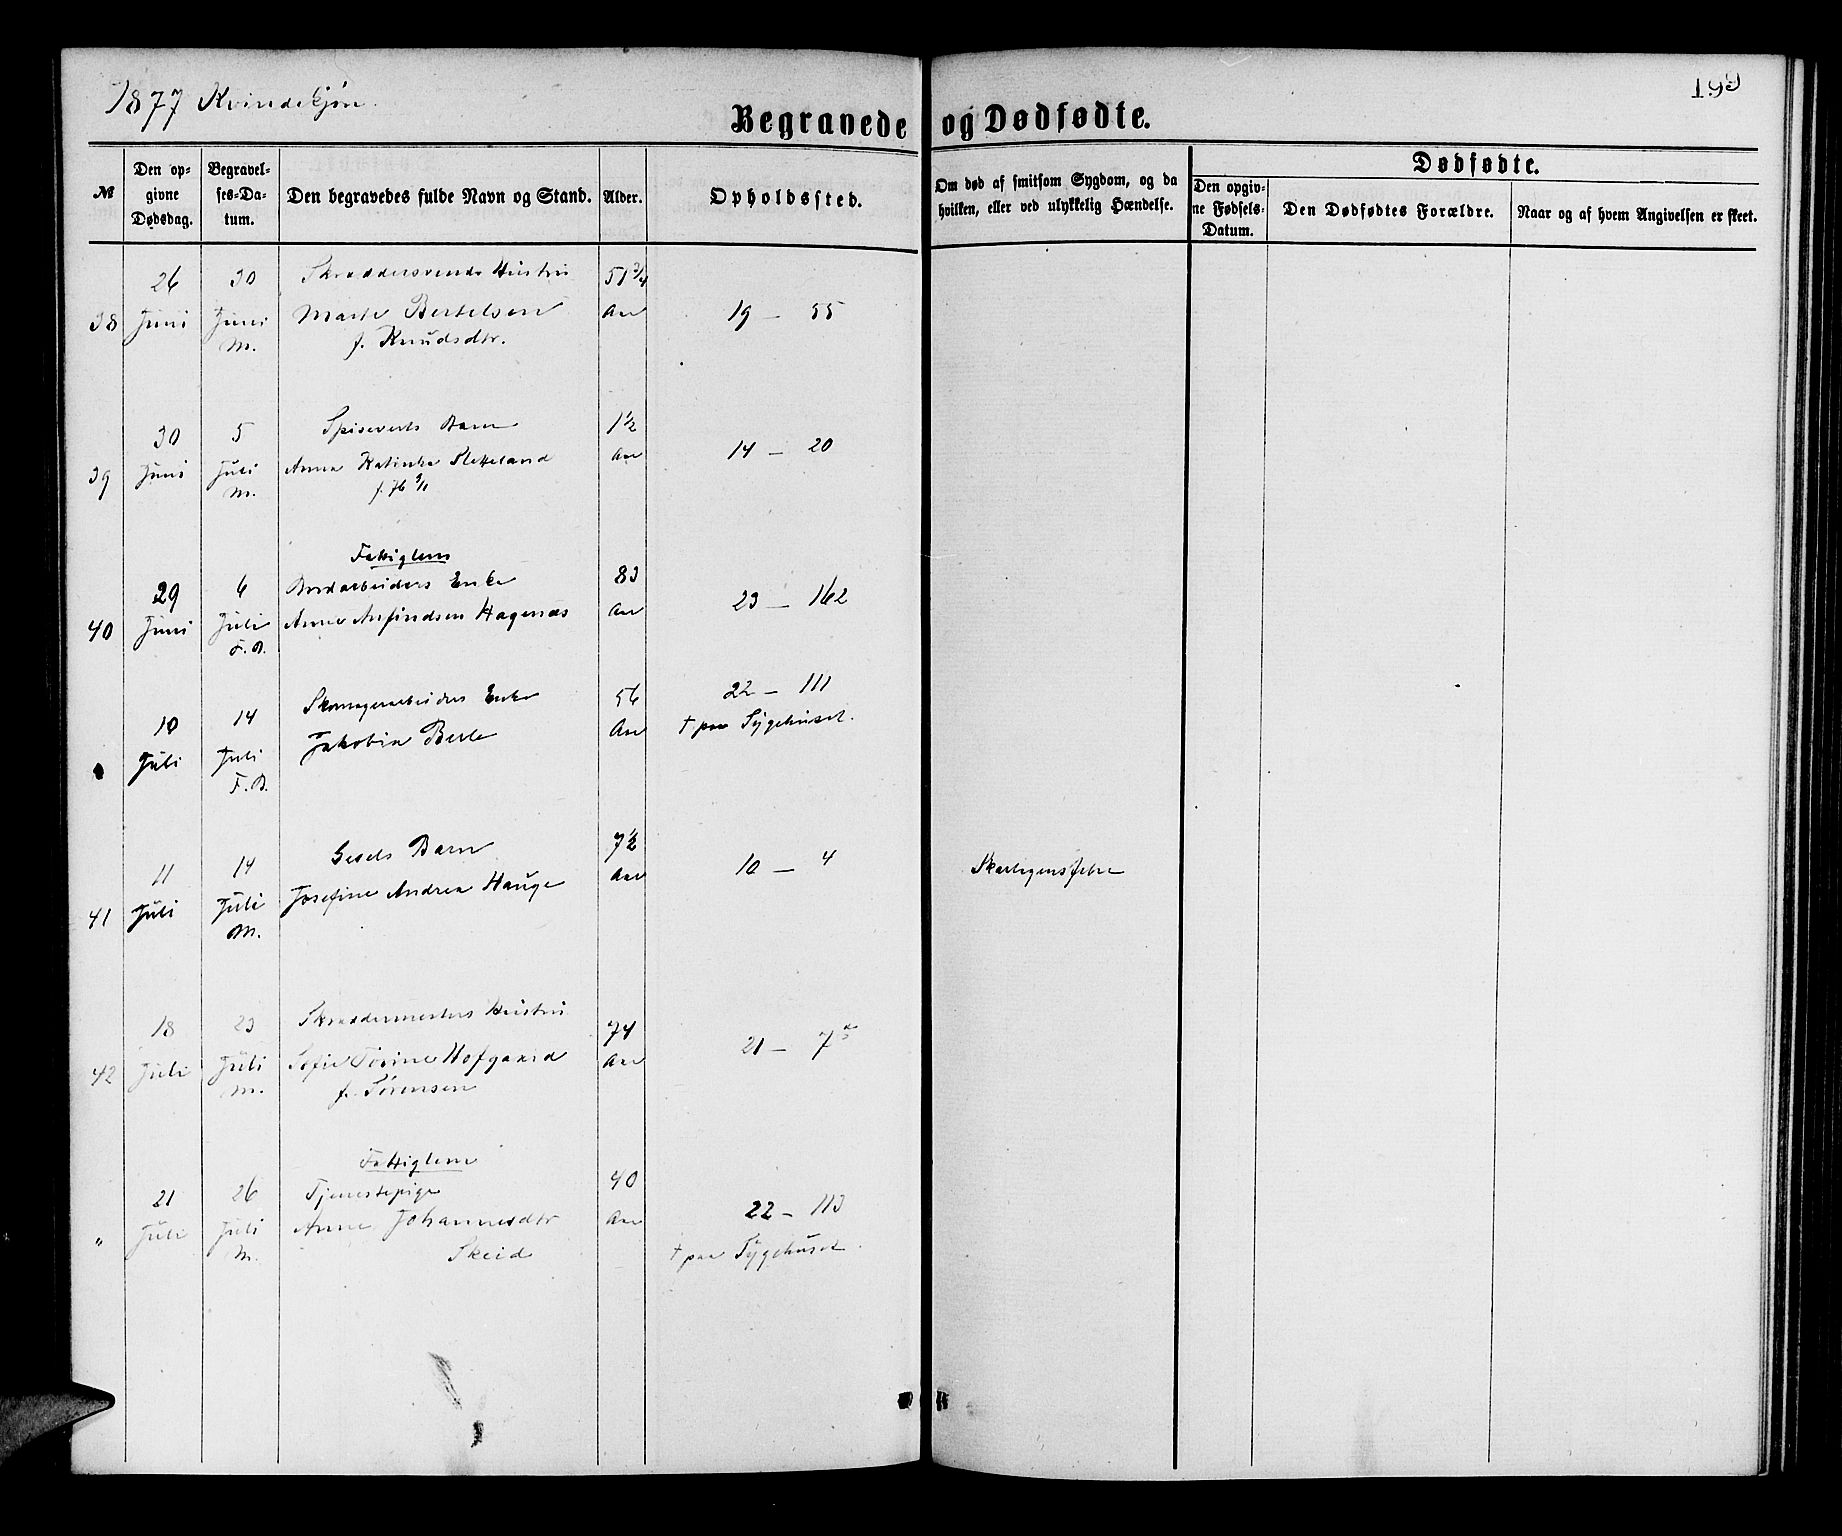 1877 Kvindekjøn.
199
Begravede og Dødfødte.
№
Den opgivne Dødsdag.
Begravelses-Datum.
Den begravedes fulde Navn og Stand.
Alder.
Opholdssted.
Om død af smitsom Sygdom, og da hvilken, eller ved ulykkelig Hændelse.
Dødfødte.
Den opgivne Fødsels-Datum.
Den Dødfødtes Forældre.
Naar og af hvem Angivelsen er skeet.
26 30 Skræddersvends Hustru 51 3/4
38 Juni Juni Marte Bertelsen Aar 19 — 55
M. f. Knudsdtr.
30 5 Spiseverts Barn 1 1/2
39 Juni Juli Anna Katinka Sletteland Aar 14 — 20
M. f. 76 9/11
Fattiglem
29 6 Bordarbeiders Enke 83
40 Juni Juli Anne Anfindsen Hagenæs Aar 23 — 162
F.B.
10 14 Skomagerarbeiders Enke 56 22 — 111
" Juli Juli Jakobia Berle Aar † paa Sygehuset.
F.B.
11 14 Gesels Barn 7 1/2
41 Juli Juli Josefine Andrea Hauge Aar 10 — 4 Skarlagensfeber
M.
18 23 Skræddermesters Hustru 74
42 Juli Juli Sofie Tørine Hofgaard Aar 21 — 7
M. f. Sørensen
Fattiglem
21 26 Tjenestepige 40
" Juli Juli Anne Johannesdtr Aar 22 — 113
M. Skeid † paa Sygehuset.